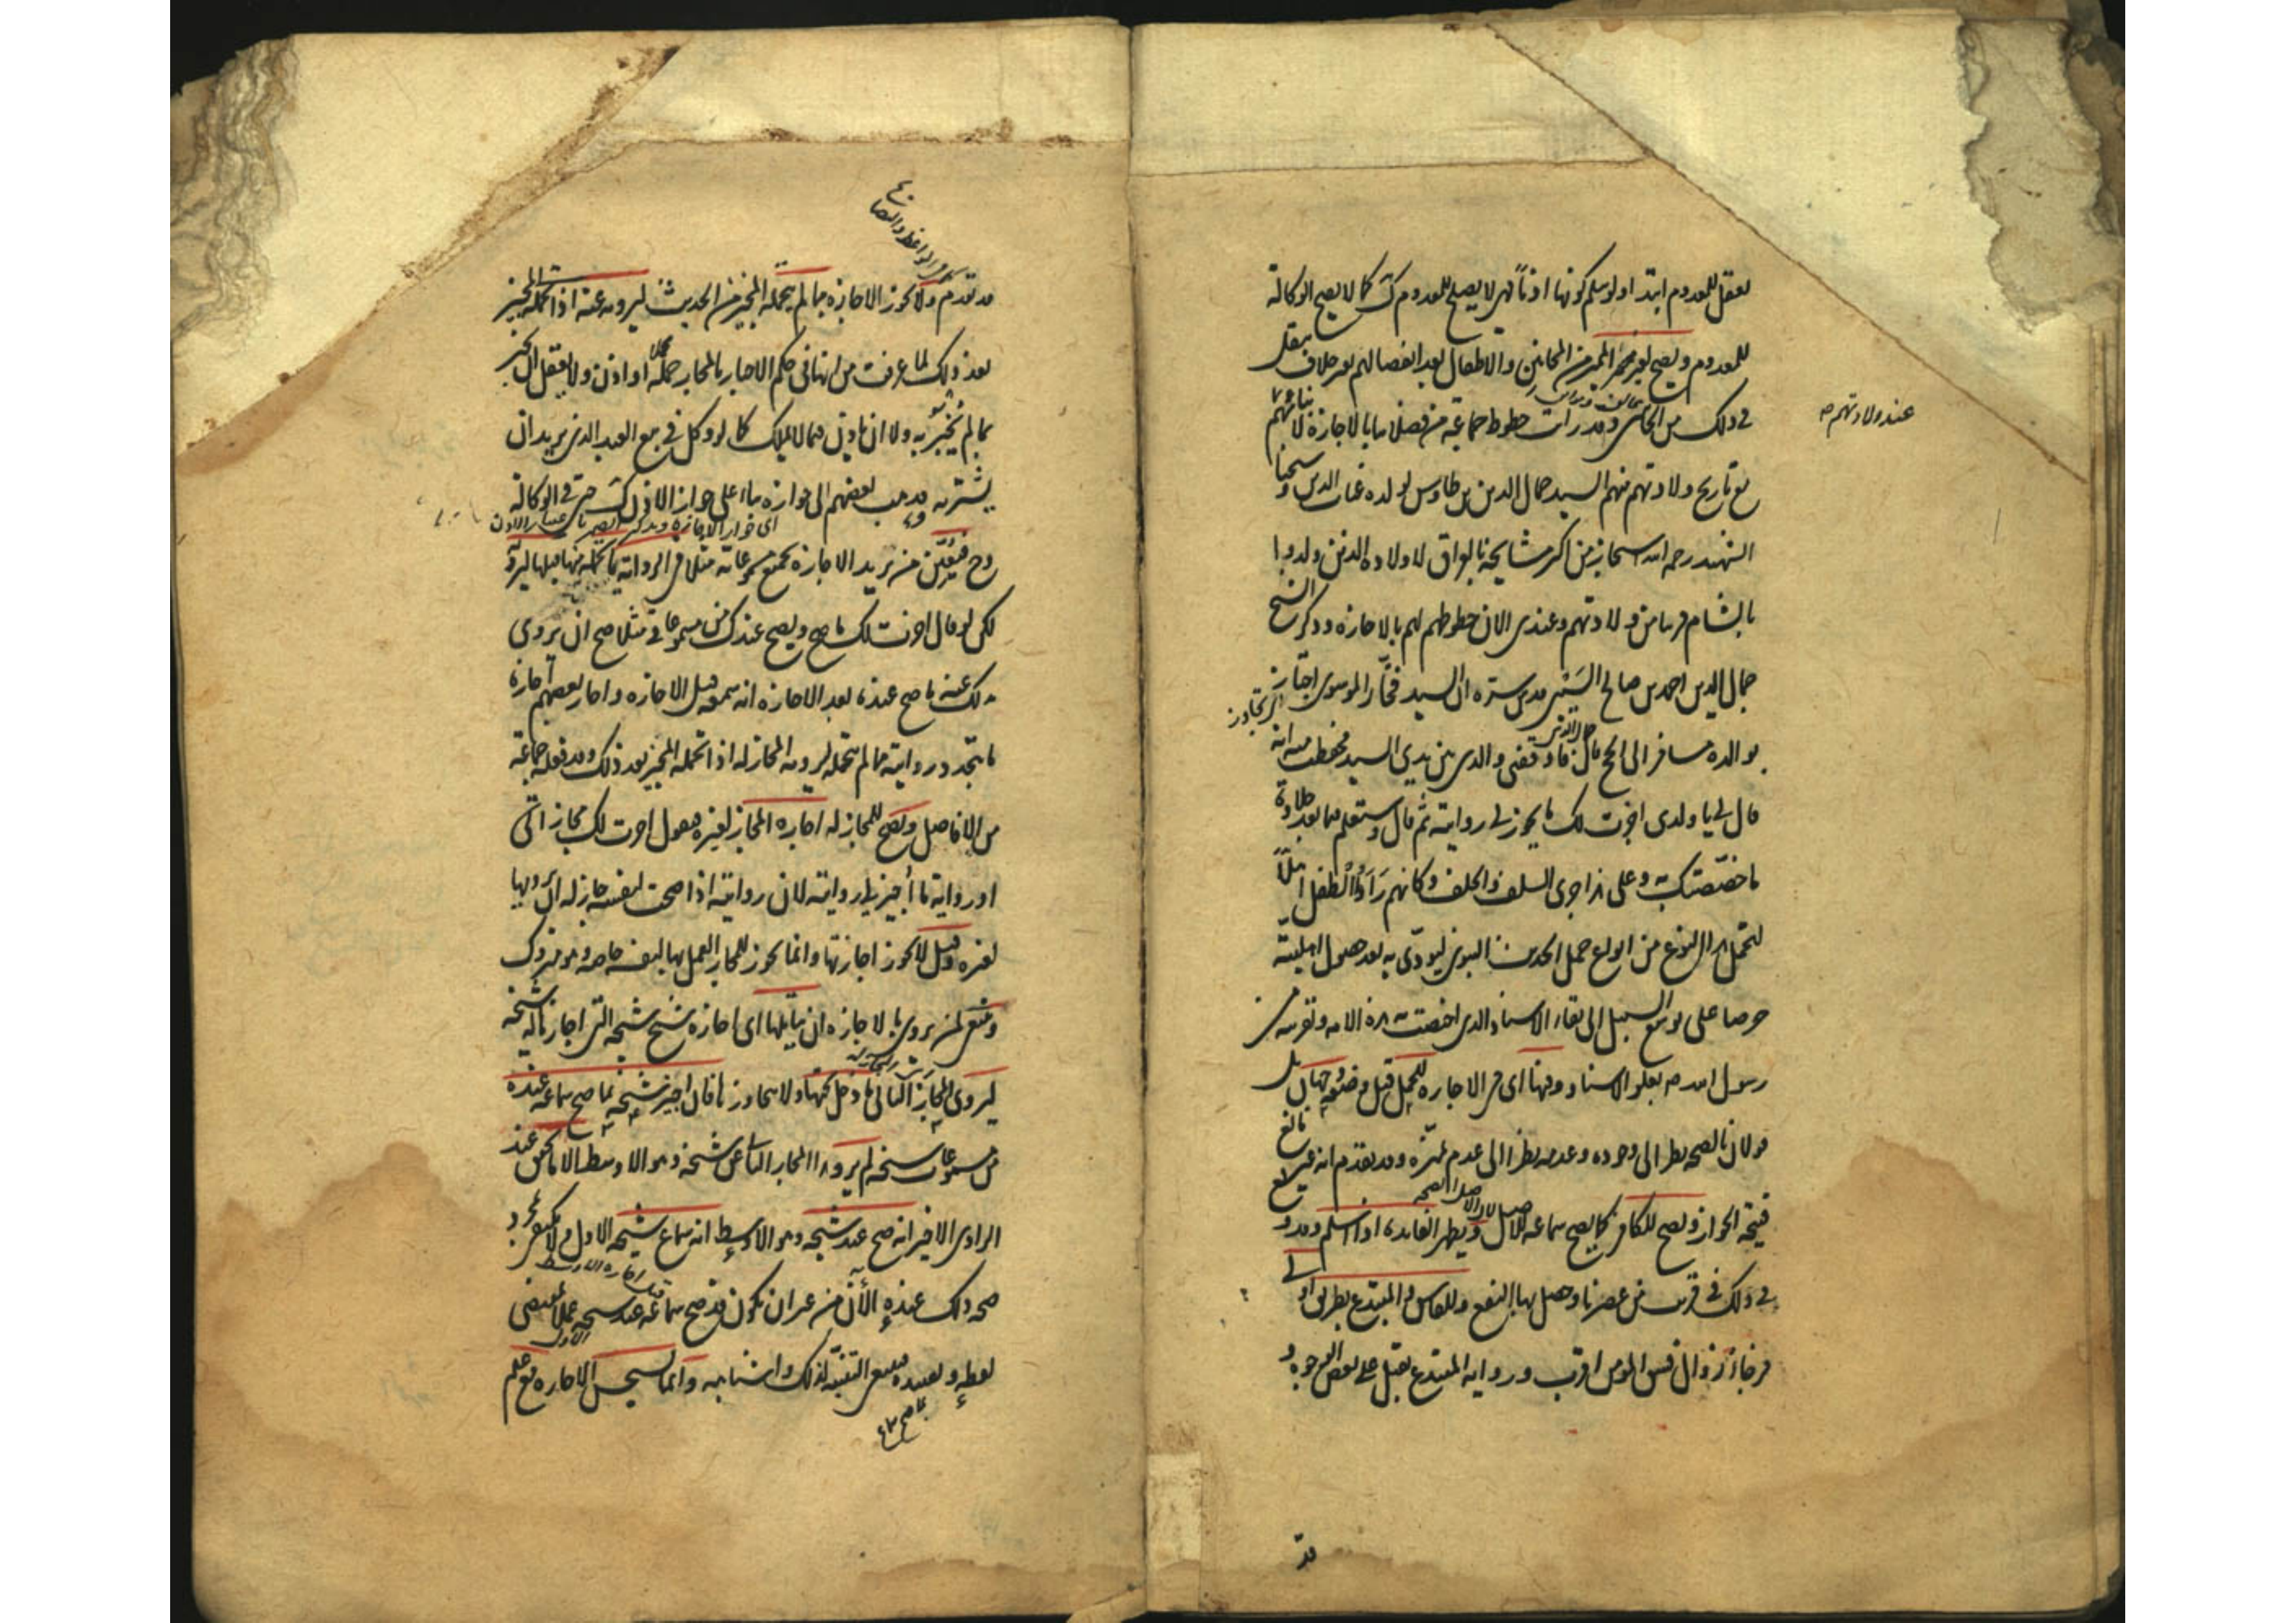 يعقل للمعدوم ابتداء ولو سلم كونها اذناً فهي لا يصلح للمعدوم كذلك كما لا يصح الوكالة
للمعدوم وتصح لغير مميز من المجانين والاطفال بعد انفصالهم بغير خلاف ينقل
في ذلك من الجانبين وقد رأيت خطوط جماعة من فضلائنا بالاجازة لابنائهم
عند ولادتهم صح
مع تاريخ ولادتهم منهم السيد جمال الدين بن طاوس لولده غياث الدين وشيخنا
الشهيد رحمه الله استجاز من اكثر مشايخه بالعراق لاولاده الذين ولدوا
بالشام قريبا من ولادتهم وعندي الان خطوطهم لهم بالاجازة وذكر الشيخ
جمال الدين احمد بن صالح السيبي قدس سره ان السيد فخار الموسوي اجتاز
بوالده مسافرا الى الحج قال فاوقفني والدي بين يدي السيد فحفظت منه انه
قال لي يا ولدي اجزت لك ما يجوز لي روايته ثم قال وستعلم فيما بعد حلاوة
ما خصصتك به وعلى هذا جرى السلف والخلف وكانهم رأوا الطفل اهلاً
لتحمل هذا النوع من انواع حمل الحديث النبوي ليؤدي به بعد حصول اهليته
حرصا على توسع السبيل الى بقاء الاسناد الذي اختصت به هذه الامة وتقريبه من
رسول الله صـ بعلو الاسناد وفيها اي في الاجازة للحمل قبل وضعه وجهان بل
قولان بالصحة نظرا الى وجوده وعدمه نظرا الى عدم تميزه وقد تقدم انه غير مانع
فيتجه الجواز وتصح للكافر كما يصح سماعه للاصل ويظهر الفائدة اذا اسلم وقد وقع
في ذلك في قريب من عصرنا وحصل بها النفع وللفاسق والمبتدع بطريق اولى
فرجاء زوال فسق المؤمن اقرب ورواية المبتدع يقبل على بعض الوجوه و
قد
قد تقدم ولا يجوز الاجازة بما لم يتحمله المجيز من الحديث ليرويه عنه اذا تحمله المجيز
بعد ذلك لما عرفت من انها في حكم الاخبار بالمجاز جملة او اذن ولا يعقل ان يخبر
بما لم يُخبَر به ولا ان ياذن فيما لا يملك كما لو وكل في بيع العبد الذي يريد ان
يشتريه وذهب بعضهم الى جوازه بناء على جواز الاذن كذلك حتى في الوكالة
وح فيتعين من يريد الاجازة بجميع مسموعاته مثلا في الرواية بما تحمله منها قبلها ليرويه
لكن لو قال اجزت لك ما صح ويصح عندك من مسموعاتي مثلا صح ان يروي
بذلك عنه ما صح عنده بعد الاجازة انه سمعه قبل الاجازة واجاز بعضهم اجازة
ما يتجدد روايته مما لم يتحمله ليرويه المجاز له اذا تحمله المجيز بعد ذلك وقد فعله جماعة
من الافاضل وتصح للمجاز له اجازة المجاز لغيره فيقول اجزت لك مجازاتي
او رواية ما أجيز لي روايته لان روايته اذا صحت لنفسه جاز له ان يرويها
لغيره وقيل لا يجوز اجازتها وانما يجوز للمجاز العمل بها لنفسه خاصة وهو متروك
وينبغي لمن يروي بالاجازة ان يتأملها اي اجازة شيخ شيخه التي اجاز بها له شيخه
ليروي المجاز الثاني ما دخل تحتها ولا يتجاوزها فان اجيز شيخه بما صح سماعه عنده
من مسموعات شيخه لم يرو هذا المجاز الثاني عن شيخه وهو الاوسط الا ما تحقق عند
الراوي الاخير انه صح عند شيخه وهو الاوسط انه سماع شيخه الاول ولا يكتفي بمجرد
صحة ذلك عنده الآن من غير ان يكون قد صح سماعه عند شيخه عملا بمقتضى
لفظه وتقييده فينبغي التنبه لذلك واشباهه وانما يستحسن الاجازة مع علم